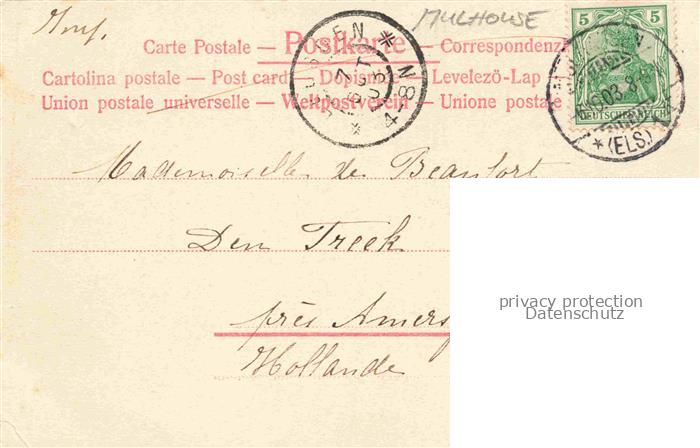 MULHOUSE
5 5
Carte Postale — Postkarte — Correspondenz
Cartolina postale — Post card — Dopisnice — Levelező-Lap
Union postale universelle — Weltpostverein — Unione postale
DEUTSCHES REICH
*(ELS.)
N 4-8
Mademoiselle de Beaufort
Den Treek
près Amers
Hollande
privacy protection
Datenschutz